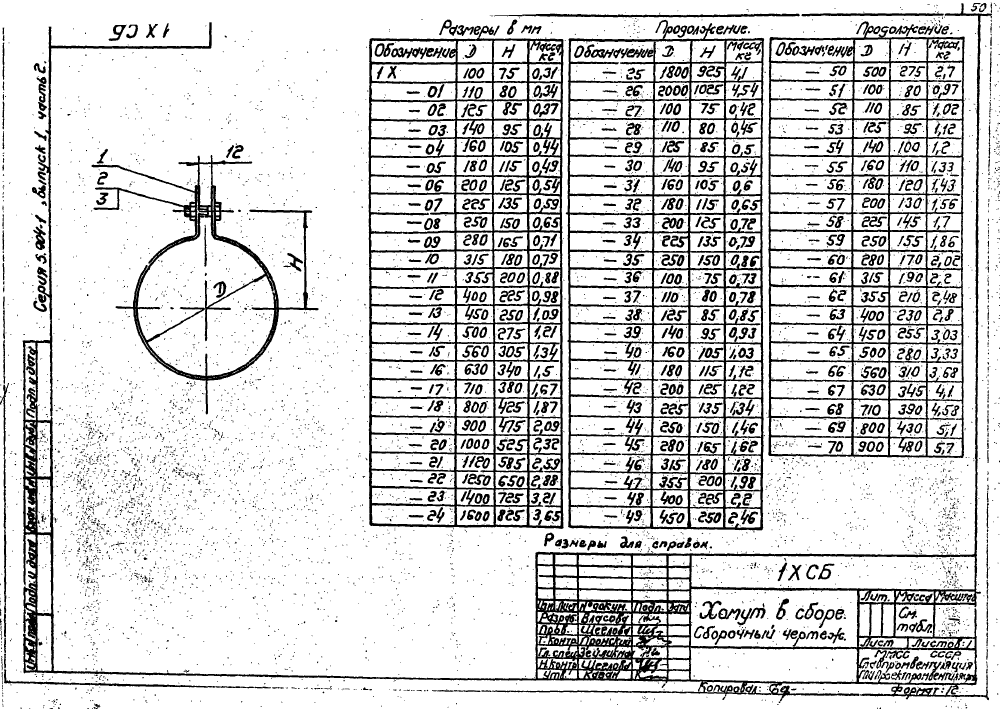 50
1Х СБ
Серия 5.904-1, выпуск 1, часть 2.
Размеры в мм
Обозначение D H Масса, кг
1Х 100 75 0,31
— 01 110 80 0,34
— 02 125 85 0,37
— 03 140 95 0,4
— 04 160 105 0,44
— 05 180 115 0,49
— 06 200 125 0,54
— 07 225 135 0,59
— 08 250 150 0,65
— 09 280 165 0,71
— 10 315 180 0,79
— 11 355 200 0,88
— 12 400 225 0,98
— 13 450 250 1,09
— 14 500 275 1,21
— 15 560 305 1,34
— 16 630 340 1,5
— 17 710 380 1,67
— 18 800 425 1,87
— 19 900 475 2,09
— 20 1000 525 2,32
— 21 1120 585 2,59
— 22 1250 650 2,88
— 23 1400 725 3,21
— 24 1600 825 3,65
Продолжение.
Обозначение D H Масса, кг
— 25 1800 925 4,1
— 26 2000 1025 4,54
— 27 100 75 0,42
— 28 110 80 0,45
— 29 125 85 0,5
— 30 140 95 0,54
— 31 160 105 0,6
— 32 180 115 0,65
— 33 200 125 0,72
— 34 225 135 0,79
— 35 250 150 0,86
— 36 100 75 0,73
— 37 110 80 0,78
— 38 125 85 0,85
— 39 140 95 0,93
— 40 160 105 1,03
— 41 180 115 1,12
— 42 200 125 1,22
— 43 225 135 1,34
— 44 250 150 1,46
— 45 280 165 1,62
— 46 315 180 1,8
— 47 355 200 1,98
— 48 400 225 2,2
— 49 450 250 2,46
Продолжение.
Обозначение D H Масса, кг
— 50 500 275 2,7
— 51 100 80 0,97
— 52 110 85 1,02
— 53 125 95 1,12
— 54 140 100 1,2
— 55 160 110 1,33
— 56 180 120 1,43
— 57 200 130 1,56
— 58 225 145 1,7
— 59 250 155 1,86
— 60 280 170 2,02
— 61 315 190 2,2
— 62 355 210 2,48
— 63 400 230 2,8
— 64 450 255 3,03
— 65 500 280 3,33
— 66 560 310 3,68
— 67 630 345 4,1
— 68 710 390 4,58
— 69 800 430 5,1
— 70 900 480 5,7
1
2
3
12
H
D
Размеры для справок.
1ХСБ
Хомут в сборе.
Сборочный чертеж.
Лит. Масса Масштаб
См. табл.
Лист Листов 1
ММСС СССР
Главпромвентиляция
Изм. Лист № докум. Подп. Дата
Разраб. Власова
Пров. Щеглова
Т. контр. Пронский
Гл. спец.
Н. контр. Щеглова
Утв. Каган
Копировал:
Формат: 12
Инв. № подл. Подп. и дата Взам. инв. № Инв. № дубл. Подп. и дата